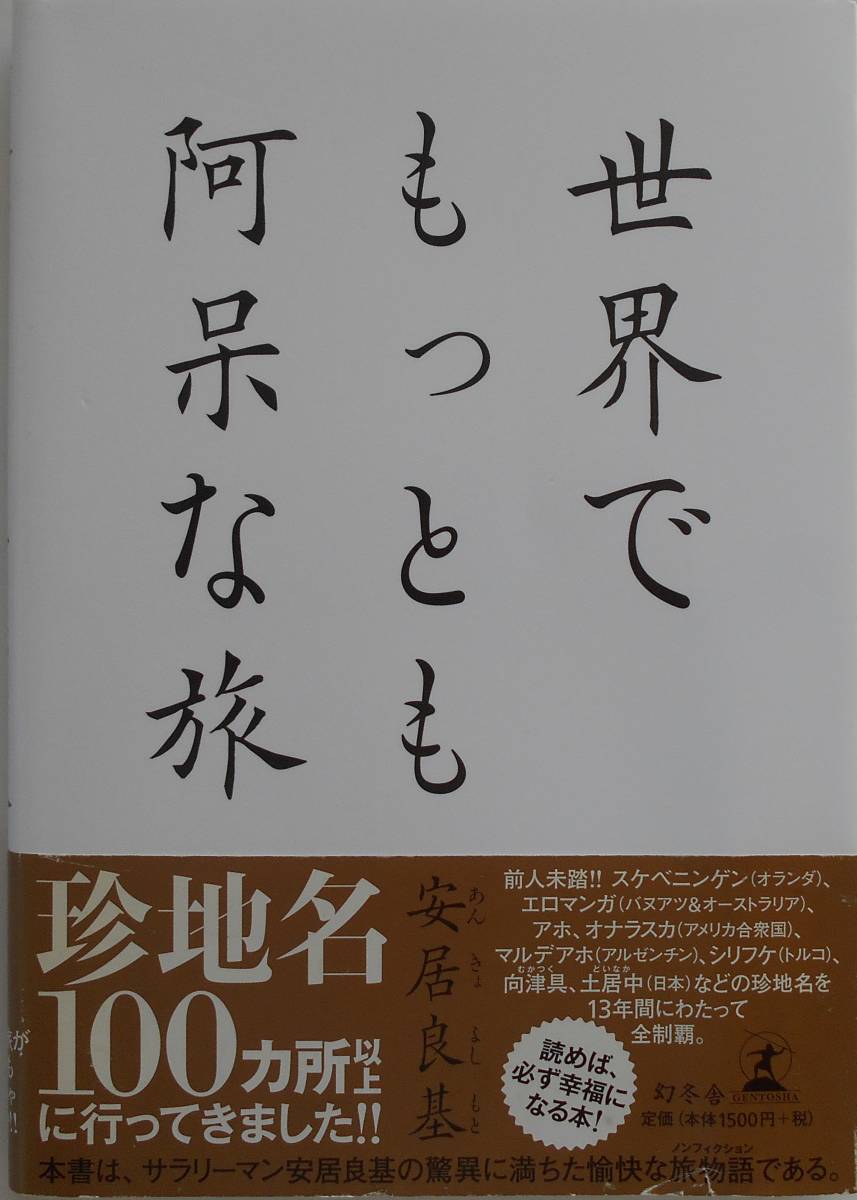 世界で
もっとも
阿呆な旅
珍地名
100カ所以上
に行ってきました!!
安居良基
あん きょ よし もと
前人未踏!! スケベニンゲン(オランダ)、
エロマンガ(バヌアツ&オーストラリア)、
アホ、オナラスカ(アメリカ合衆国)、
マルデアホ(アルゼンチン)、シリフケ(トルコ)、
むかつく どいなか
向津具、土居中(日本)などの珍地名を
13年間にわたって
全制覇。
読めば、
必ず幸福に
なる本!
幻冬舎
GENTOSHA
定価(本体1500円+税)
ノンフィクション
本書は、サラリーマン安居良基の驚異に満ちた愉快な旅物語である。